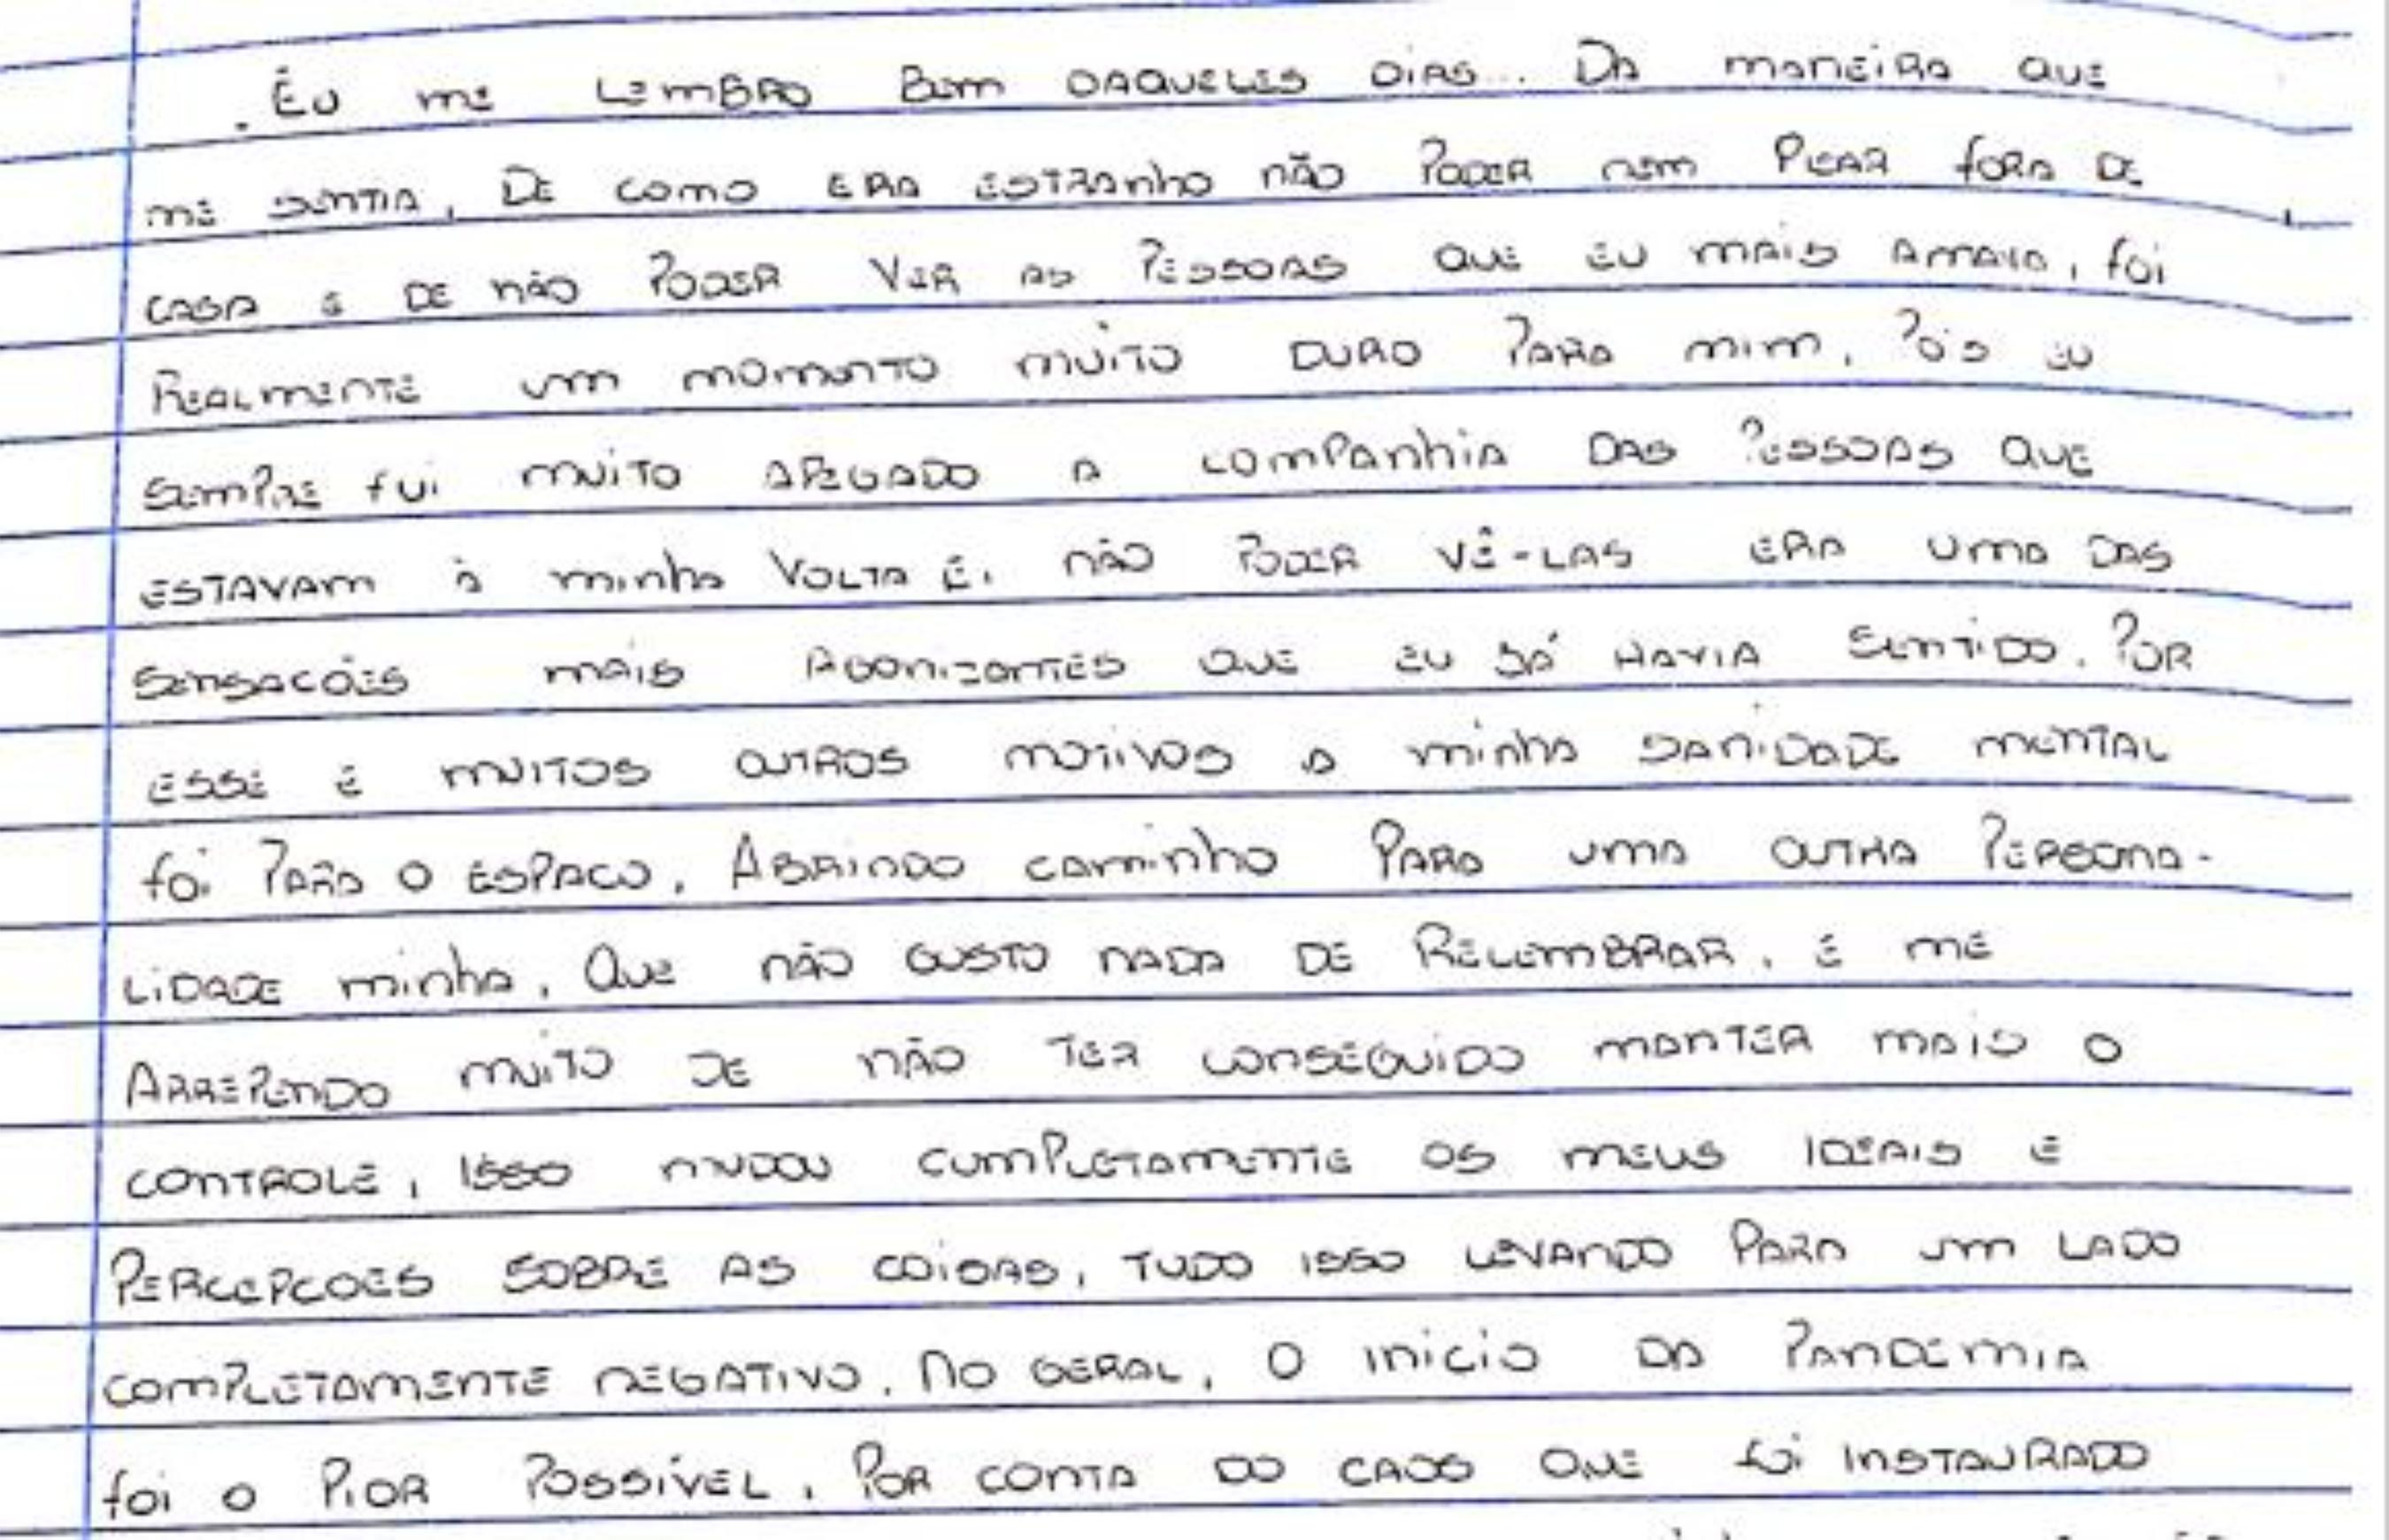 Eu me lembro bem daqueles dias... Da maneira que
me sentia, de como era estranho não poder nem pisar fora de
casa e de não poder ver as pessoas que eu mais amava, foi
realmente um momento muito duro para mim, pois eu
sempre fui muito apegado a companhia das pessoas que
estavam à minha volta e, não poder vê-las era uma das
sensacões mais agonizantes que eu já havia sentido. Por
esse e muitos outros motivos a minha sanidade mental
foi para o espaco. Abrindo caminho para uma outra persona-
lidade minha, que não gosto nada de relembrar, e me
arrependo muito de não ter conseguido manter mais o
controle, isso mudou completamente os meus ideais e
percepcoes sobre as coisas, tudo isso levando para um lado
completamente negativo. No geral, o inicio da pandemia
foi o pior possível, por conta do caos que foi instaurado